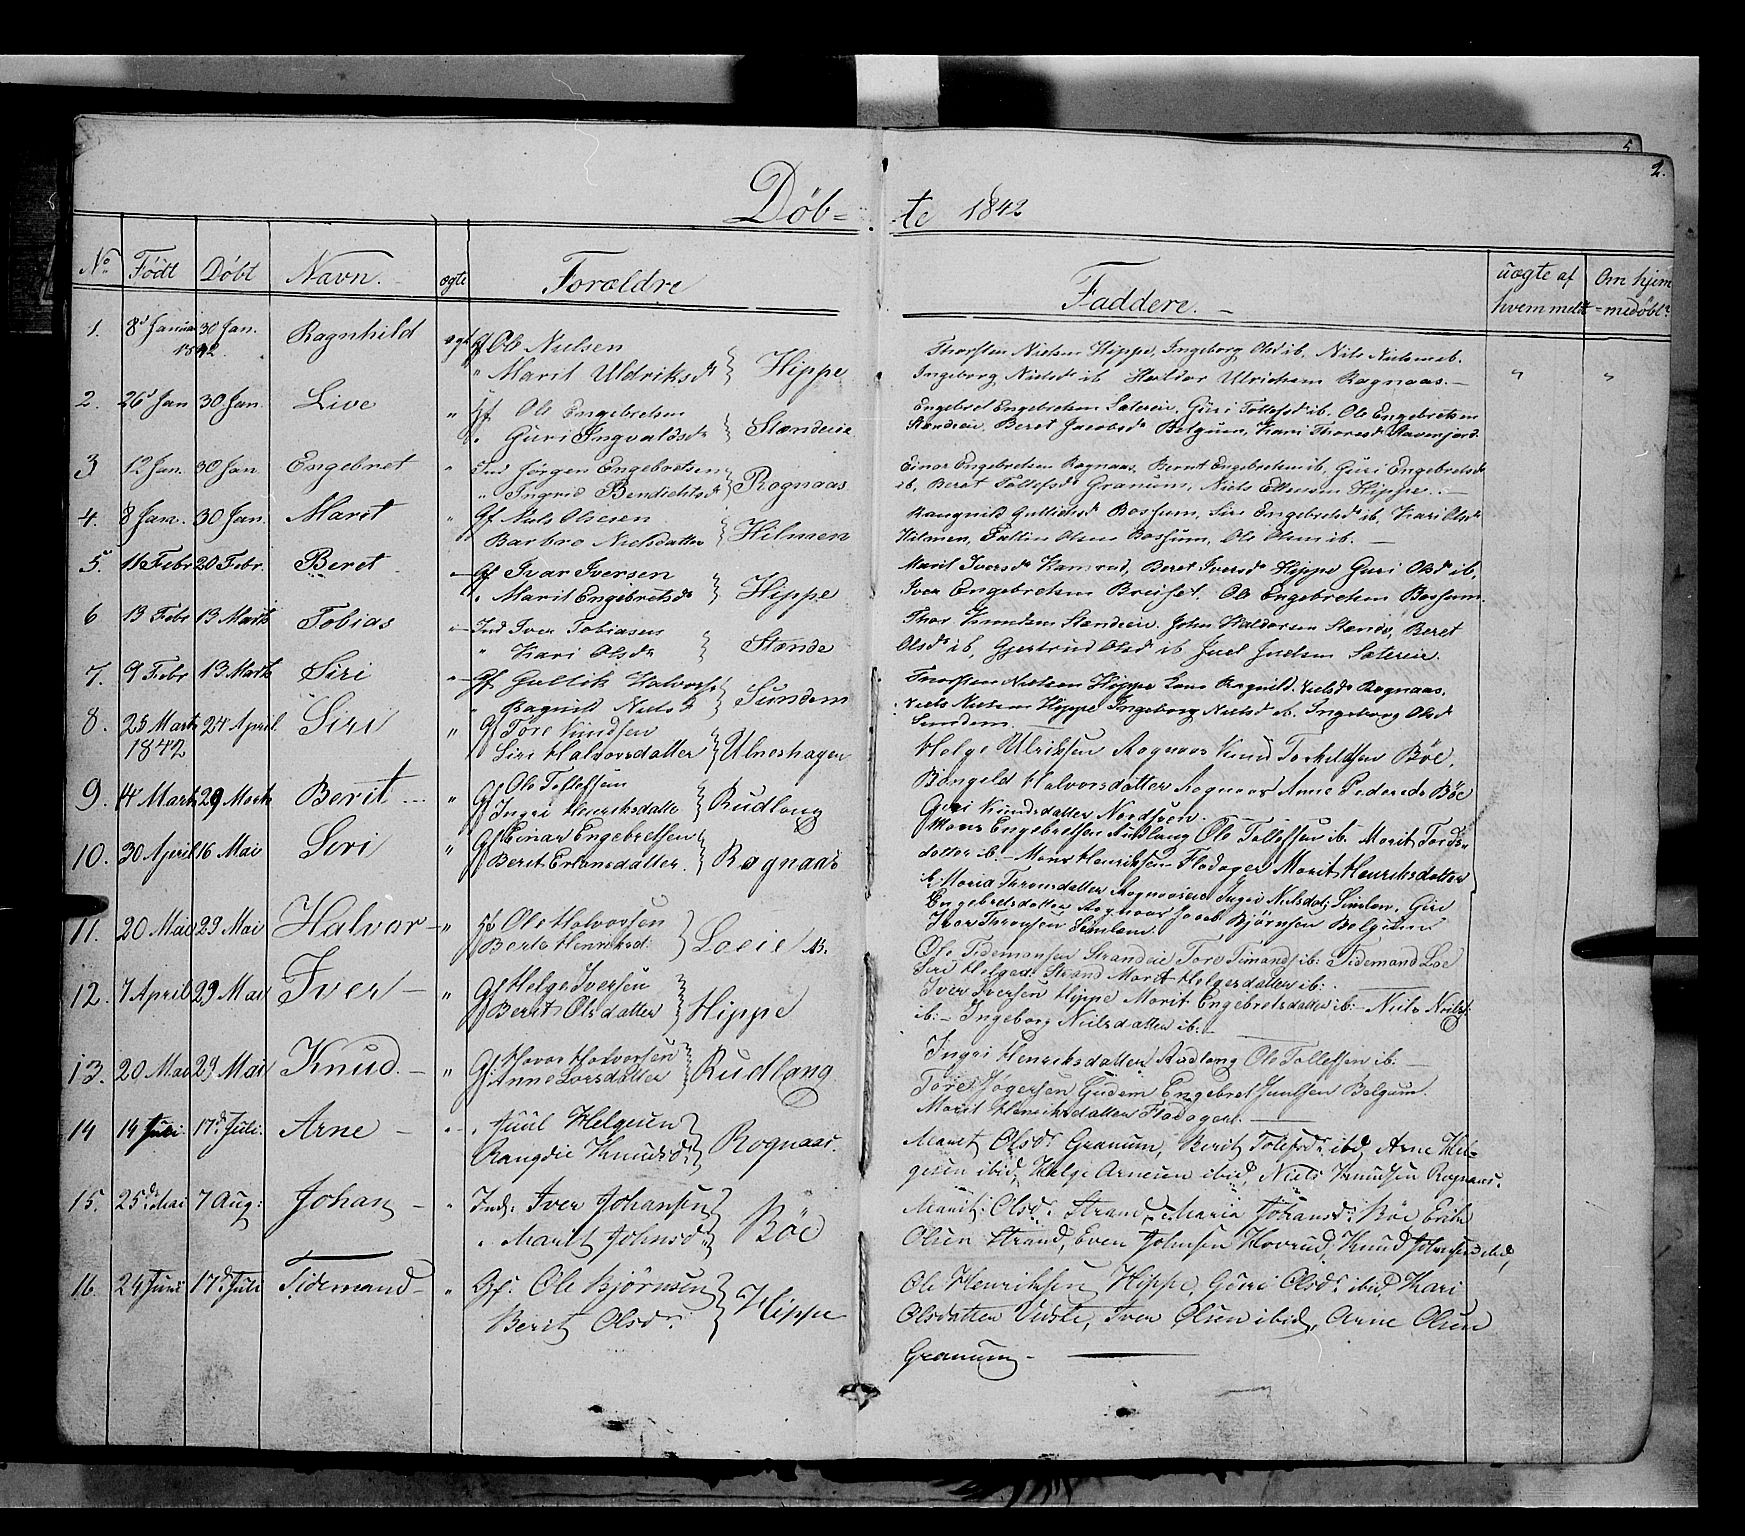 5
2.
Döb= te 1842
No Födt Döbt Navn. ægte Forældre Faddere. uægte af hvem meldt Om hjem=medöbt
1. 8d Januar 1842 30 Jan. Ragnhild ægt Gf Ole Nielsen
" Marit Uldriksd Hippe
Thorsten Nielsen Hippe, Ingeborg Olsd ib, Niels Nielsen ib.
Ingeborg Nielsd ib Haldor Ulrichsen Rognaas. — " "
2. 26d Jan 30 Jan. Live " Hf Ole Engebretsen
" Guri Ingvaldsd Standeie
Engebret Engebretsen Satereie, Guri Tollefsd ib. Ole Engebretsen
Standeie, Beret Jacobsd Belgum, Kari Thoresd
3 12 Jan. 30 Jan Engebret " Ind Jörgen Engebretsen
" Ingrid Bendichtsd Rognaas
Einar Engebretsen Rognaas, Bernt Engebretsen ib, Guri Engebretsd
ib, Beret Tollefsd Granum, Niels Hippe. —
4. 8 Jan. 30 Jan. Maret " Gf Niels Olesen
Barbro Nielsdatter Hilmen
Gulliksd Bossum, Siri Engebretsd ib, Kari Olsd
Hilmen, Olsen Bossum, Ole Olsen ib. —
5. 11 Febr 20 Febr. Beret Gf Ivar Iversen
" Marit Engebretsd Hippe
Marit Iversd Beret Iversd Hippe Guri Olsd ib,
Iver Engebretsen Ole Engebretsen Bossum.
6 13 Febr 13 Marts Tobias Ind Iver Tobiasen
" Kari Olsd Stande
Thor Knudsen Standeie. John Haldorsen Stande, Beret
Olsd ib, Gjertrud Olsd ib Juel Juelsen Satereie.
7. 9 Febr 13 Marts Siri Gf Gullik Halvors
" Ragnild Nielsd Sundem
Thorsten Nielsen Hippe Ragnild Nielsd Rognaas,
Niels Nielsen Hippe Ingeborg Nielsd ib. Ingeborg Olsd
Sundem —
8. 25 Marts 1842 24 April. Siri " Gf Tore Knudsen
Siri Halvorsdatter Ulneshagen
Helge Ulriksen Rognaas Knud Torkeldsen Böe,
Böngeld Halvorsdatter Rognaas Anne Pedersd Böe
Guri Knudsdatter Nordsven.
9. 14 Marts 29 Marts Berit " Gf Ole Tollefsen
Ingri Henriksdatter Rudlang
Mons Engebretsen Rudlang Ole Tollefsen ib — Marit Tords-
datter ib. — Mons Henriksen Flodager Marit Henriksdatter
10. 30 April 16 Mai Seri " Gf Einar Engebretsen
Beret Erlansdatter. Rognaas
ib: Maria Thronsdatter Rognaaseie Ingri Nilsdat; Guri
Engebretsdatter Rognaas Jacob Björnsen Belgum
Iver Tronsen
11. 20 Mai 29 Mai Halvor " Hf Ole Halvorsen
Berte Henriksd: Loeie
Ole Tidemansen Strandeie Tore Timands ib: Tidemand Loe
Siri Helgedt Strand Marit Helgesdatter ib:
12. 7 April 29 Mai Iver — " Gf Helge Iversen
Berit Olsdatter Hippe
Iver Iversen Hippe Marit Engebretsdatter ib: — Niels Nielss:
ib: — Ingeborg Nielsdatter ib. —
13. 20 Mai 29 Mai Knud. — " Gf: Havor Halvorsen
Anne Larsdatter Rudlang
Ingri Henriksdatter Rudlang Ole Tollefsen ib. —
Tore Jögersen Gudem Engebret Belgum.
Marit Henriksdatter Flodager. —
14 14 Juli. 17d: Juli. Arne — " Juul Helgesen
Rangdie Knudsd: Rognaas.
Maret Olsd: Granum, Berit Tolefsd: ibd, Arne Hel-
gesen ibid, Helge Arnesen ibid, Niels Knudsen Rognaas.
15. 25d: Mai 7 Aug: Johan — " Ind: Iver Johansen
" Marit Johnsd: Böe
Mandt: Olsd: Strand, Maria Johansd: Böe Erik
Olsen Strand, Even Johnsen Hovrud, Knud Johnsen ibid,
16. 24 Juni 17d: Juli Tidemand — " Gf. Ole Björnsen
Berit Olsd: Hippe
Ole Henriksen Hippe, Guri Olsd: ibid, Kari
Olsdatter Iver Olsen ibid, Arne Olsen
Granum —